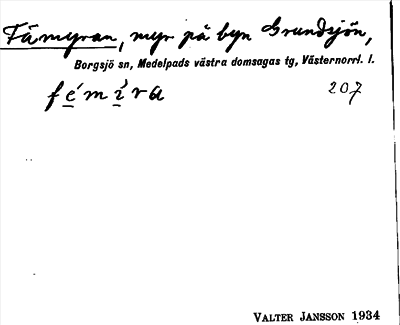 Fämyran, myr på byn Grundsjön,
Borgsjö sn, Medelpads västra domsagas tg, Västernorrl. l.
fé̲mì̲ra 207
VALTER JANSSON 1934